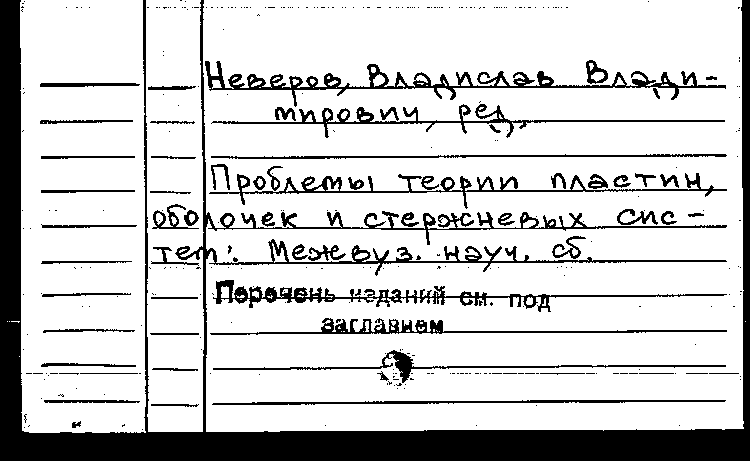 Неверов, Владислав Влади-
мирович, ред.
Проблемы теории пластин,
оболочек и стержневых сис-
тем: Межвуз. науч. сб.
Перечень изданий см. под
заглавием